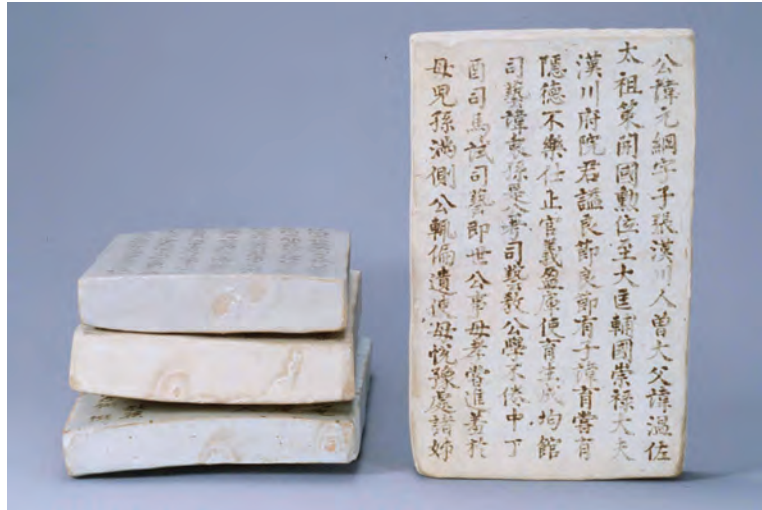 公諱元綱字子張漢川人曾大父諱溫佐
太祖策開國勳位至大匡輔國崇祿大夫
漢川府院君諡良節良節有子諱育嘗有
隱德不樂仕止官義盈庫使育生成均館
司藝諱衷孫是公考司藝教公學不倦中丁
酉司馬試司藝即世公事母孝嘗進羞於
母兒孫滿側公輒偏遺使母悅豫處諸姊